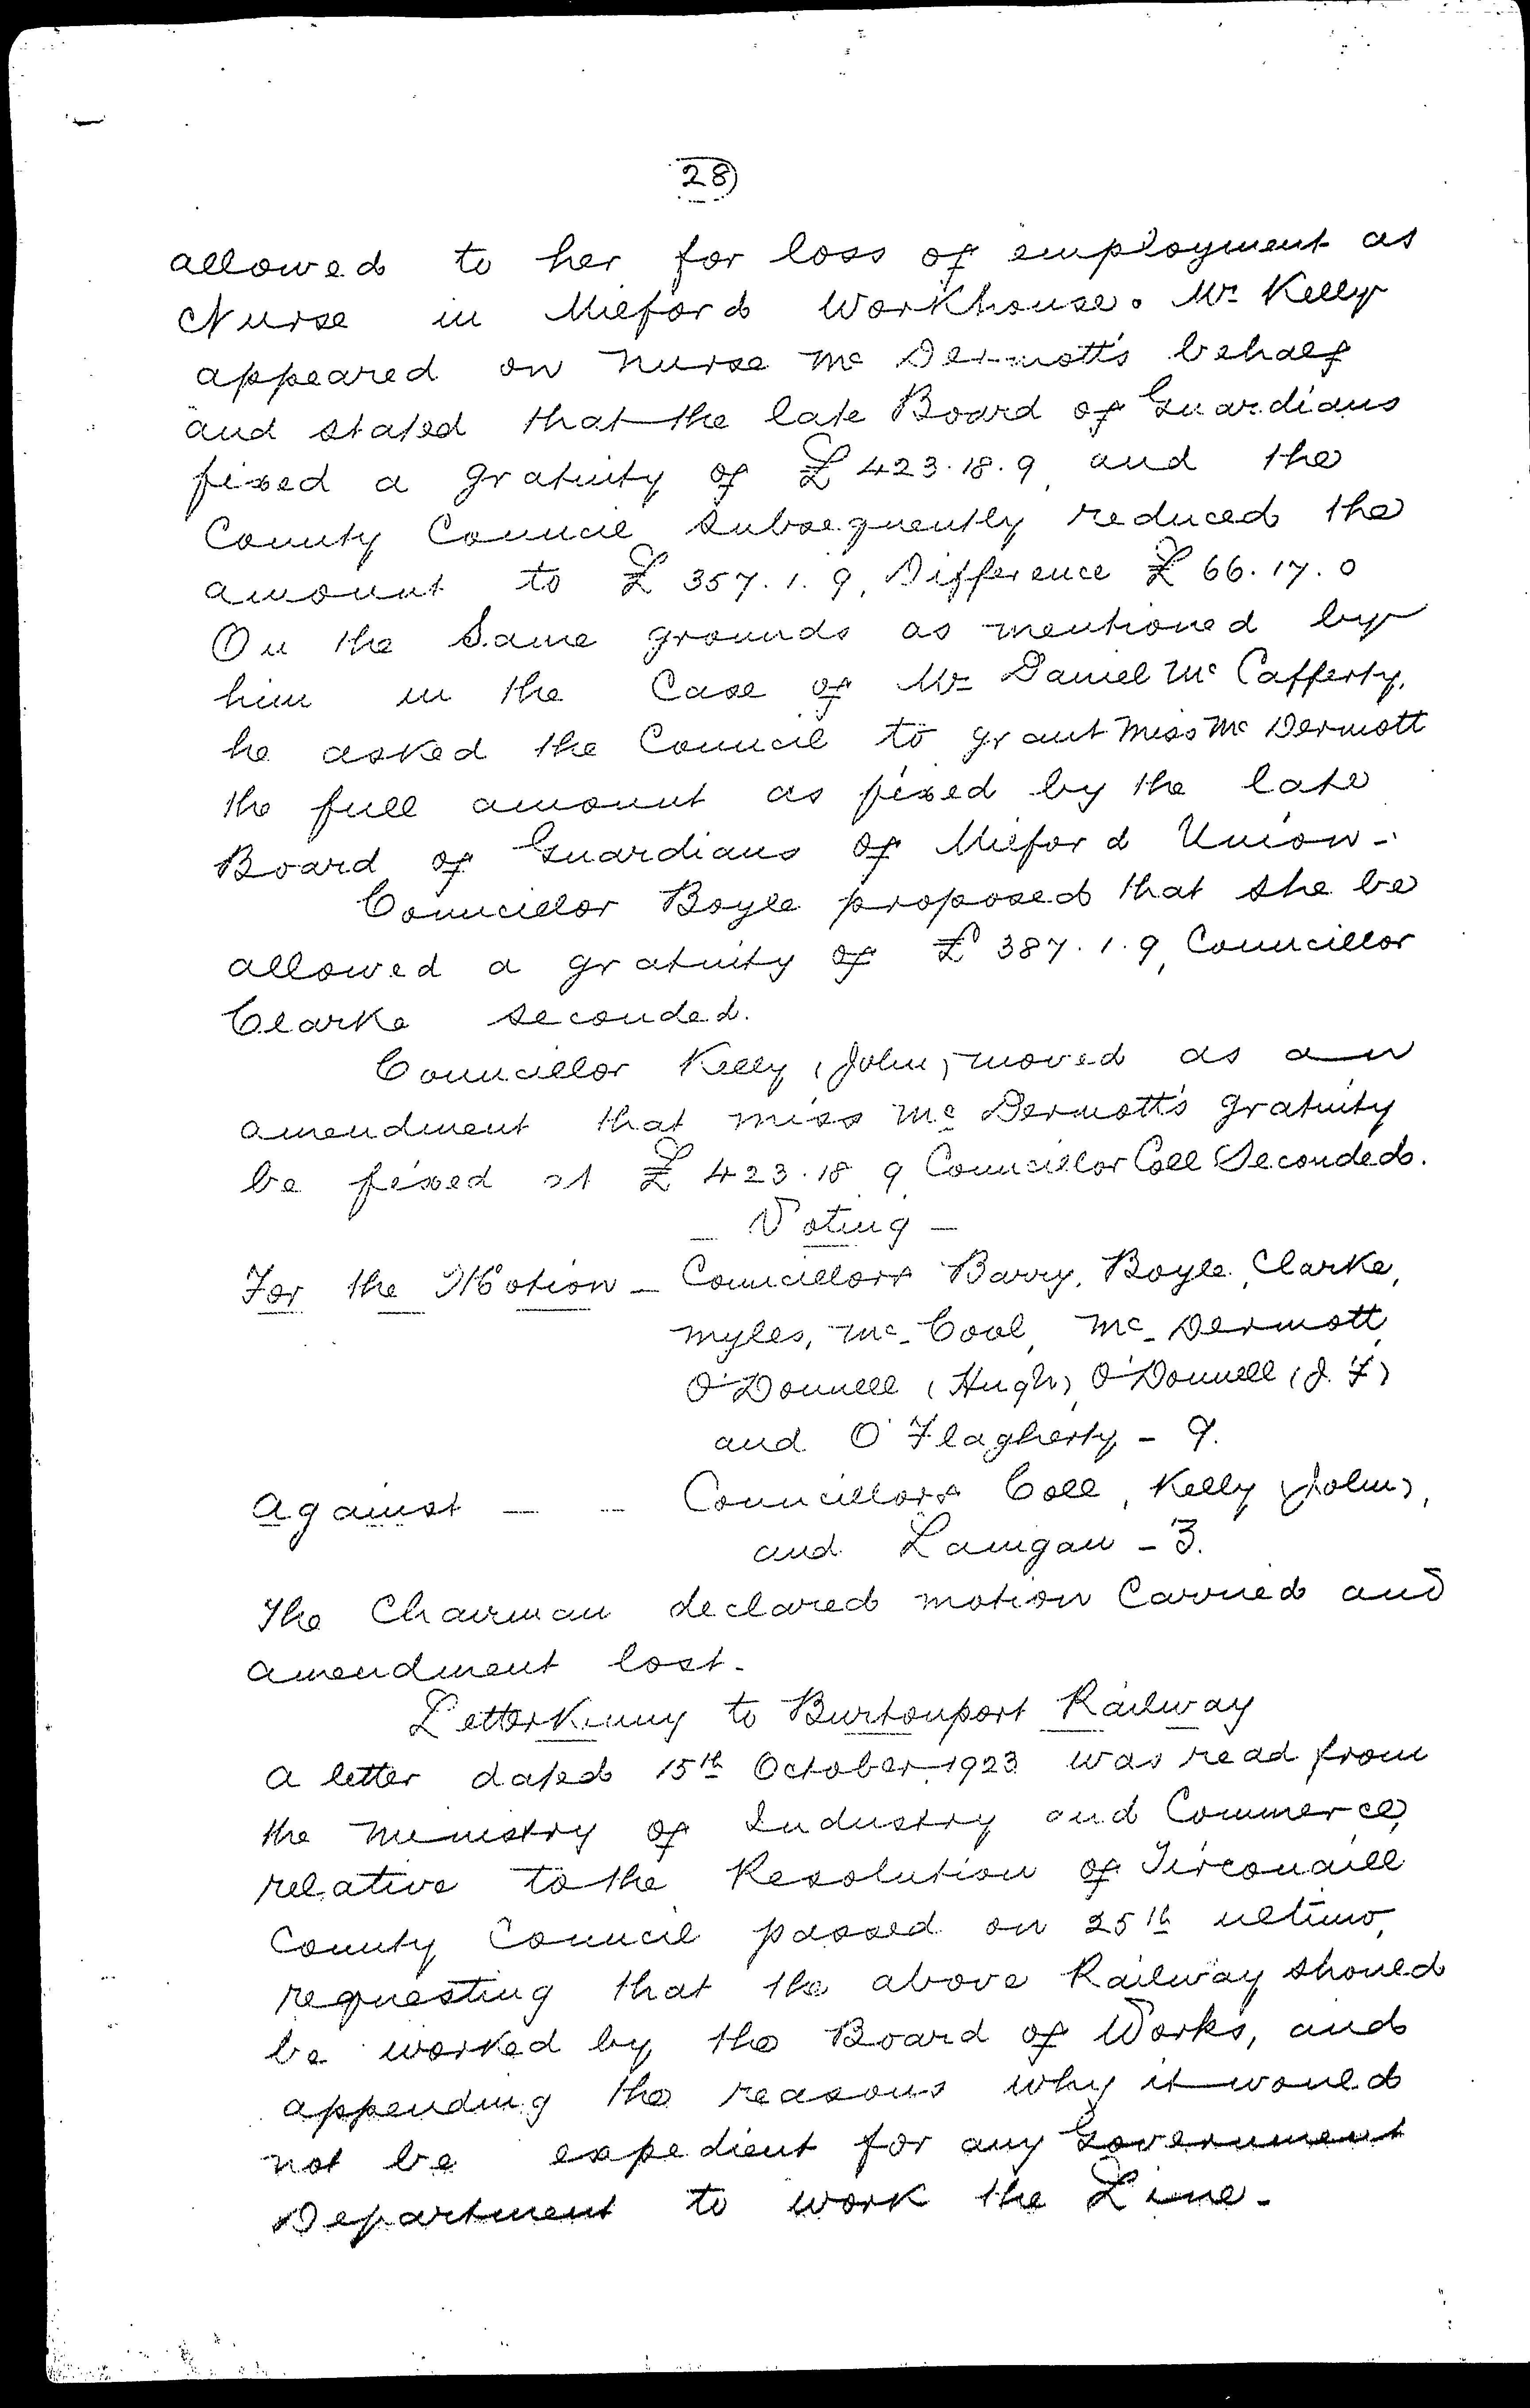 28
allowed to her for loss of employment as
Nurse in Milford Workhouse. Mr Kelly
appeared on Nurse Mc Dermott's behalf
and stated that the late Board of Guardians
fixed a gratuity of £423.18.9, and the
County Council subsequently reduced the
amount to £357.1.9, Difference £66.17.0
On the same grounds as mentioned by
him in the Case of Mr Daniel Mc Cafferty,
he asked the Council to grant Miss Mc Dermott
the full amount as fixed by the late
Board of Guardians of Milford Union.
Councillor Boyle proposed that she be
allowed a gratuity of £387.1.9, Councillor
Clarke seconded.
Councillor Kelly (John) moved as an
amendment that Miss Mc Dermott's gratuity
be fixed at £423.18.9 Councillor Coll Seconded.
- Voting -
For the Motion - Councillors Barry, Boyle, Clarke,
Myles, Mc Cool, Mc Dermott,
O'Donnell (Hugh), O'Donnell (J.F)
and O'Flagherty - 9.
Against - - Councillors Coll, Kelly (John),
and Lanigan - 3.
The Chairman declared motion Carried and
amendment lost.
Letterkenny to Burtonport Railway
A letter dated 15th October, 1923 was read from
the Ministry of Industry and Commerce,
relative to the Resolution of Tirconaill
County Council passed on 25th ultimo,
requesting that the above Railway should
be worked by the Board of Works, and
appending the reasons why it would
not be expedient for any Government
Department to work the Line.